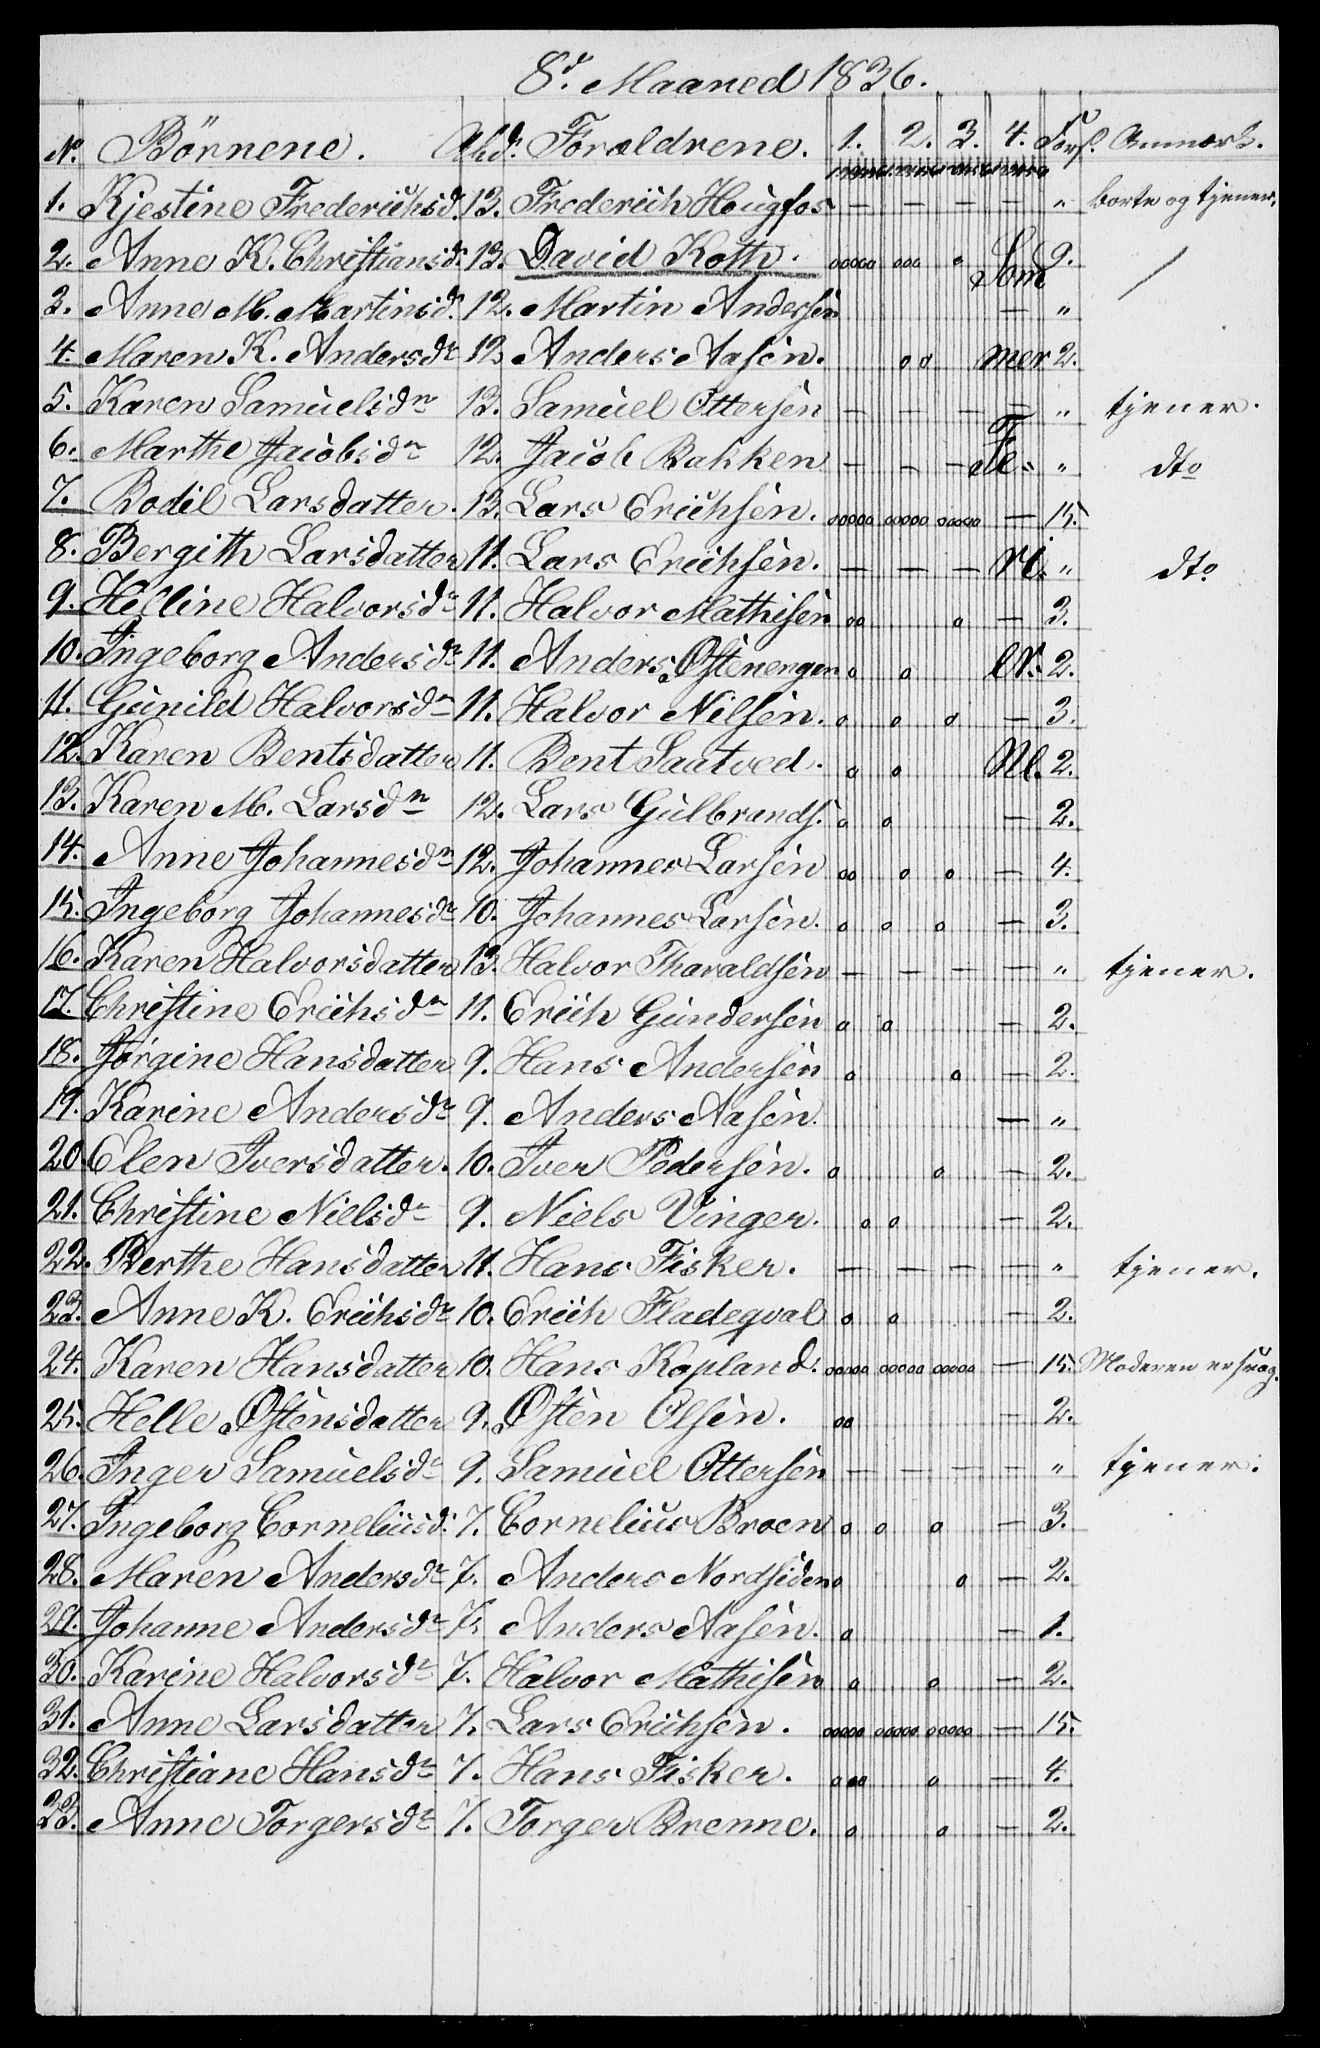 8d. Maaned 1836.
No. Börnene. Ald. Forældrene. 1. 2. 3. 4. Fors. Anmærk.
1. Kjestine Frederichsd. 13. Frederich Hougfos — — — — " borte og tjener.
2. Anne K. Christiansd. 13. David Koth. ooooo ooo o 9. /
3. Anne M. Martinsd. 12. Martin Andersen — "
4. Maren K. Andersdr 12 Anders Aasen. o o 2.
5. Karen Samuelsdr 13. Samuel Ottersen — — — — " tjener.
6. Marthe Jacobsdr 12. Jacob Bakken — — — " dto
7. Bodil Larsdatter. 13. Lars Erichsen. ooooo ooooo ooooo — 15.
8. Bergith Larsdatter 11. Lars Erichsen. — — — " dto
9. Helline Halvorsdr 11. Halvor Mathisen oo o — 3.
10. Ingeborg Andersdr 11. Anders Østenengen o o 2.
11. Gunild Halvorsdr 11. Halvor Nilsen. o o o — 3.
12. Karen Bentsdatter 11. Bent Saatved. o o 2.
13. Karen M. Larsdr 12. Lars Gulbrands. o o — 2.
14. Anne Johannesdr 12. Johannes Larsen oo o o — 4.
15. Ingeborg Johannesdr 10. Johannes Larsen. o o o — 3.
16. Karen Halvorsdatter 13. Halvor Tharaldsen — — — — " tjener.
17. Christine Erichsdr 11. Erich Gundersen o o — 2.
18. Jørgine Hansdatter 9. Hans Andersen o o — 2.
19. Karine Andersdr 9. Anders Aasen. — "
20. Elen Iversdatter. 10. Iver Pedersen. o o — 2.
21. Christine Nielsdr 9. Niels Vinger. o o — 2.
22. Berthe Hansdatter 11. Hans Fisker. — — — — " tjener.
23. Anne K. Erichsdr 10. Erich Fladeqval o o — 2.
24. Karen Hansdatter 10. Hans Kopland. ooooo ooooo ooooo — 15. Moderen er svag.
25. Helle Østensdatter 9. Østen Olsen. oo — 2.
26. Inger Samuelsdr 9. Samuel Ottersen — — — — " tjener.
27. Ingeborg Corneliusd. 7. Cornelius Broen o o o — 3.
28. Maren Andersdr 7. Anders Nordsiden o o — 2.
29. Johanne Andersdr 7. Anders Aasen. o — 1.
30. Karine Halvorsdr 7. Halvor Mathisen o o — 2.
31. Anne Larsdatter 7. Lars Erichsen. ooooo ooooo ooooo — 15.
32. Christiane Hansdr 7. Hans Fisker. ooo o — 4.
33. Anne Torgersdr 7. Torger Brenne. o o — 2.
Som
mer
Fe-
ri-
er.
Nl.